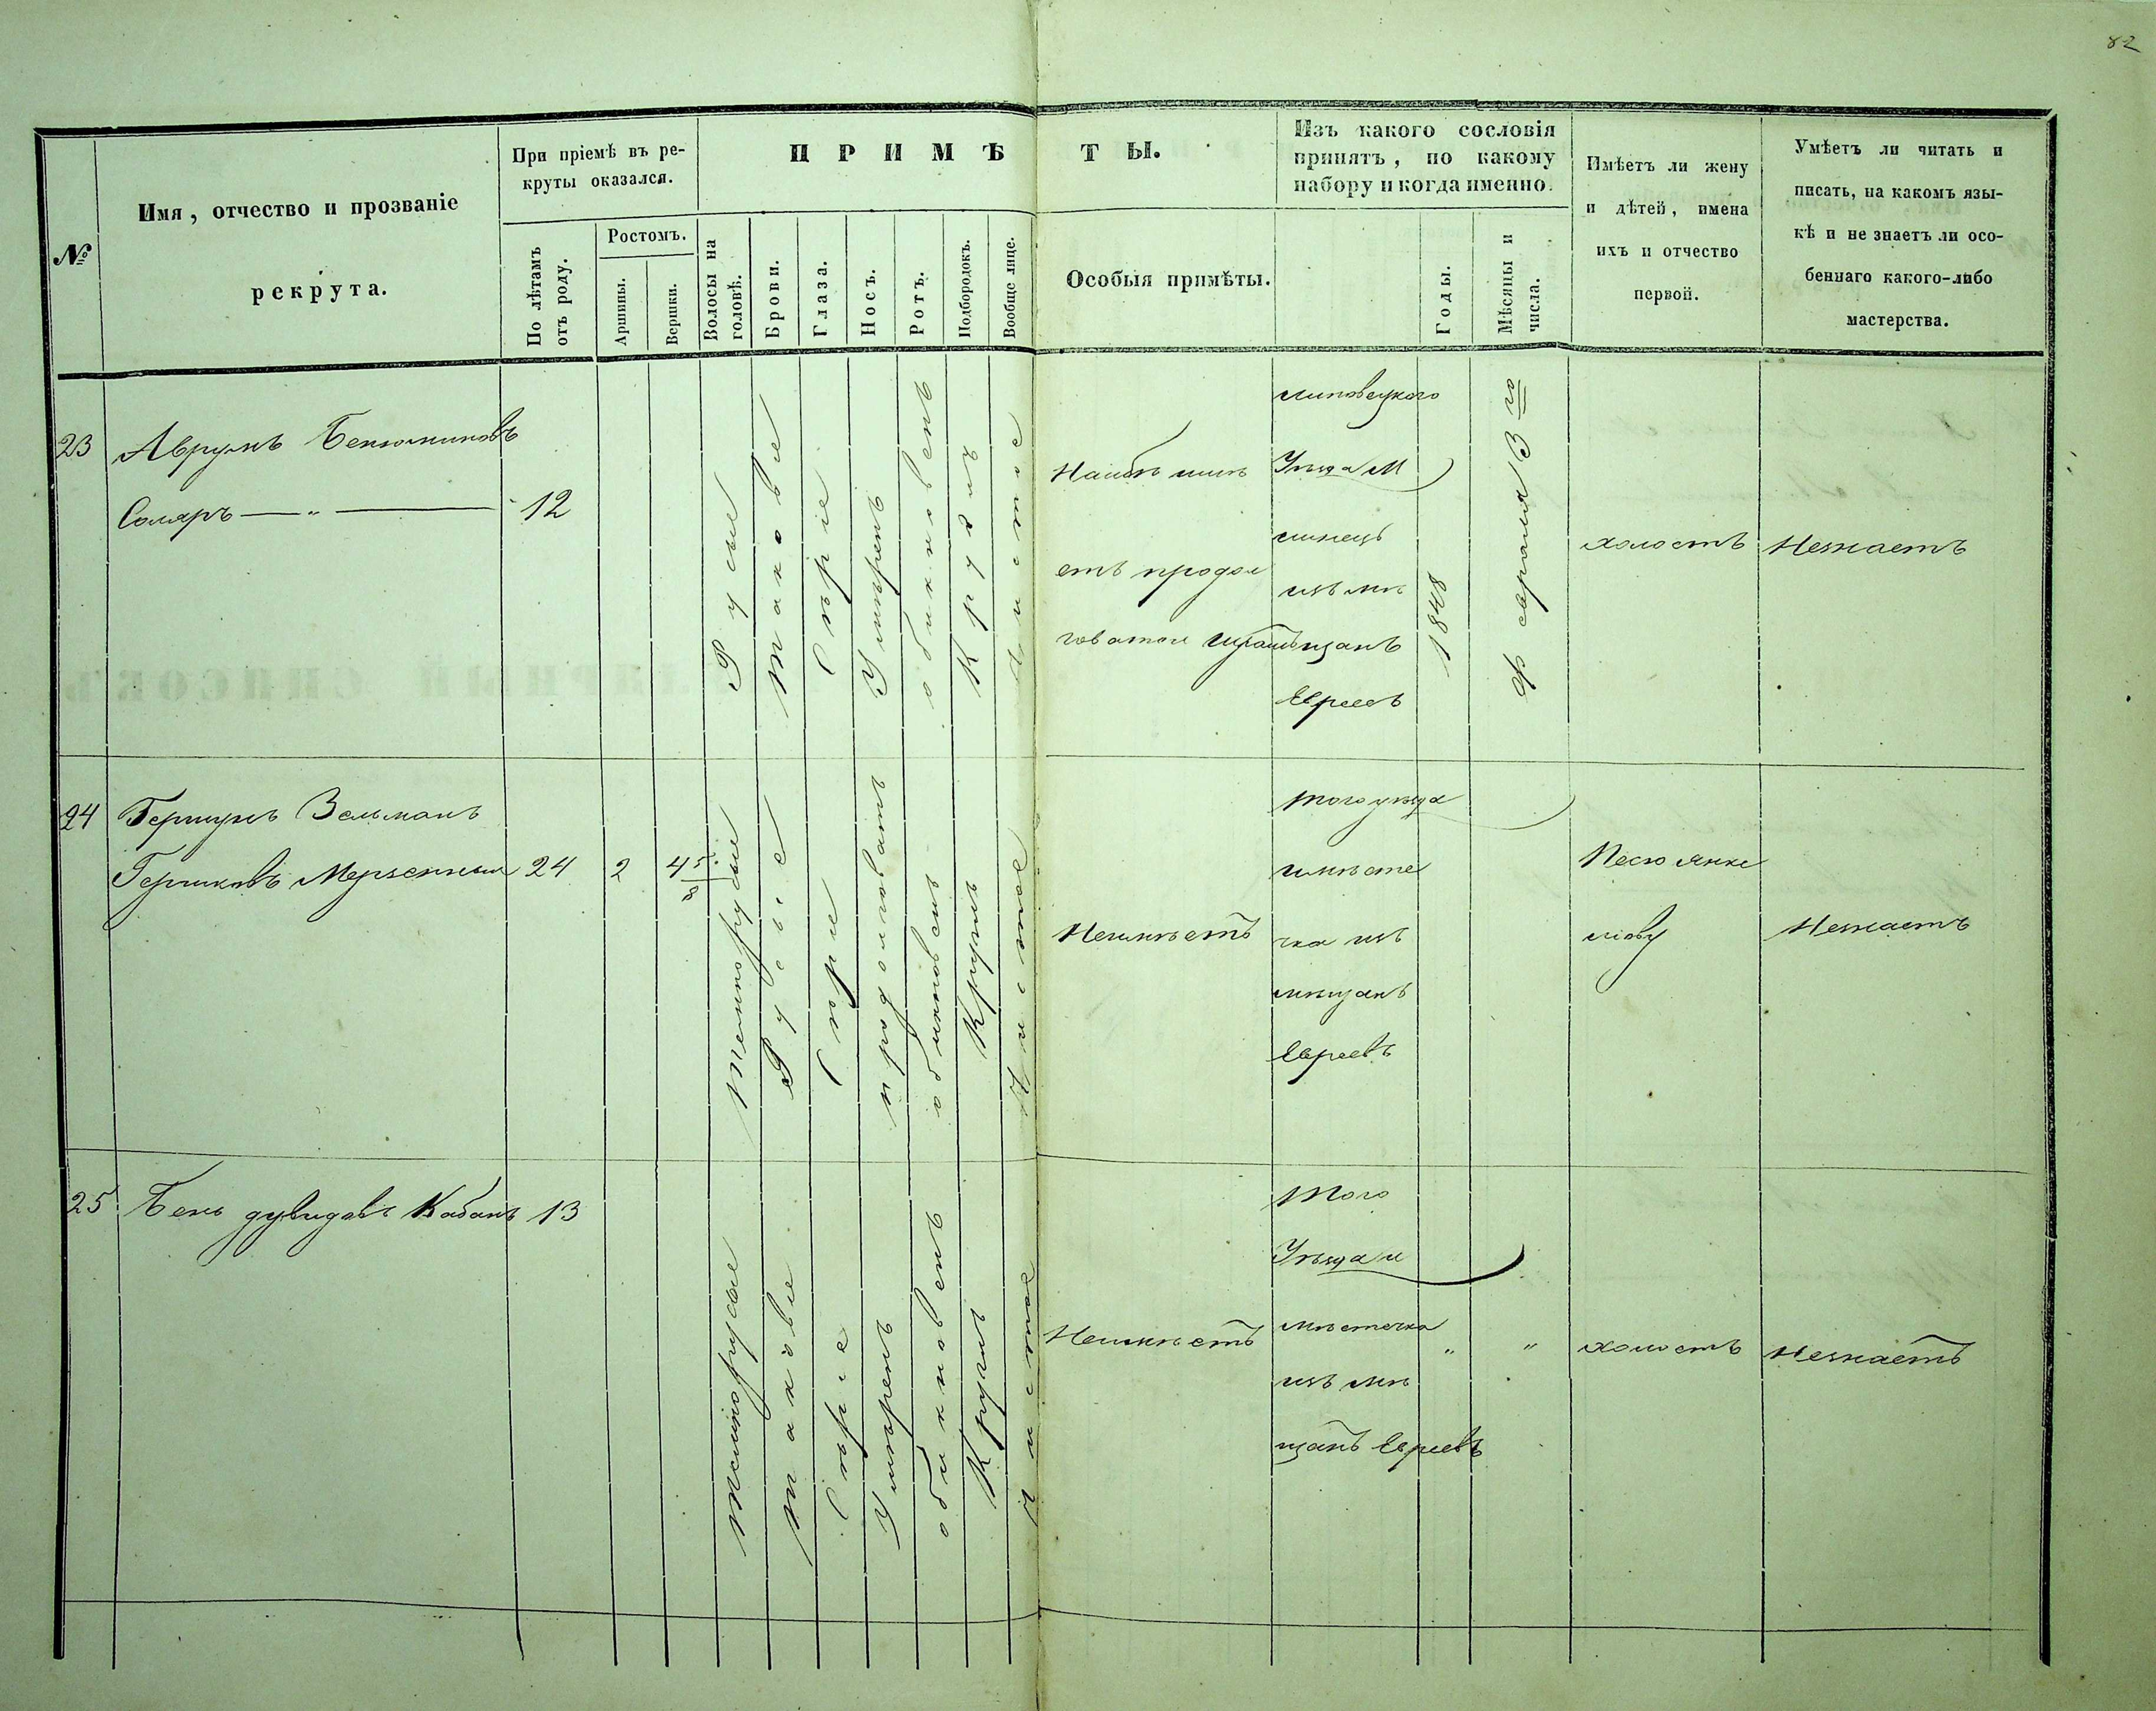 82
№
Имя, отчество и прозваніе
рекрута.
При пріемѣ въ ре-
круты оказался.
По лѣтамъ
отъ роду.
Ростомъ.
Аршины.
Вершки.
ПРИМѢТЫ.
Волосы на
головѣ.
Брови.
Глаза.
Носъ.
Ротъ.
Подбородокъ.
Вообще лице.
Особыя примѣты.
Изъ какого сословія
принятъ, по какому
набору и когда именно.
Годы.
Мѣсяцы и
числа.
Имѣетъ ли жену
и дѣтей, имена
ихъ и отчество
первой.
Умѣетъ ли читать и
писать, на какомъ язы-
кѣ и не знаетъ ли осо-
беннаго какого-либо
мастерства.
23
Аврумъ Беньюминовъ
Столяръ
12
Русые
таковіе
Сѣріе
Умѣренъ
обикновенъ
Круглъ
Чистое
На лбѣ имѣ
етъ продол
говатой шрамъ
Липовецкого
Уѣзда М
линецъ
изъ мѣ
щанъ
Евреевъ
1848
Февраля 3 го
холостъ
Незнаетъ
24
Гершунъ Зельманъ
Гершковъ
24
2
4 5/8
Темнорусые
Русые
Сѣріе
продолговатъ
обикновенъ
Круглъ
Чистое
Неимѣетъ
того уѣзда
и мѣсте
чка изъ
мѣщанъ
Евреевъ
Песю Янке
ліову
Незнаетъ
25
Бень Дувидовъ Кабанъ
13
Темнорусые
таковіе
Сѣріе
Умѣренъ
обикновенъ
Круглъ
Чистое
Неимѣетъ
Того
Уѣзда и
мѣстечка
изъ мѣ
щанъ Евреевъ
"
"
холостъ
Незнаетъ